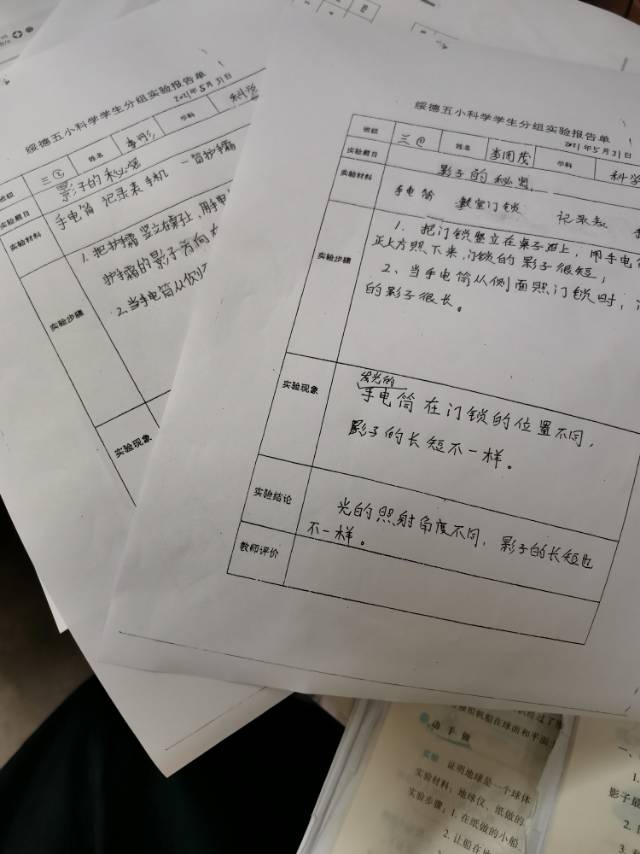 绥德五小科学学生分组实验报告单
2021年5月31日
班级 三② 姓名 学科 科学
实验题目 影子的秘密
实验材料 手电筒 记录表 手机 一管护手霜
实验步骤
1. 把护手霜竖立在桌上,用手电
护手霜的影子方向
2. 当手电筒从侧
实验现象
绥德五小科学学生分组实验报告单
2021年5月31日
班级 三② 姓名 学科 科学
实验题目 影子的秘密
实验材料 手电筒 教室门锁 记录表
实验步骤
1. 把门锁竖立在桌子面上,用手电
正上方照下来,门锁的影子很短;
2、当手电筒从侧面照门锁时,
的影子很长。
实验现象
发光的
手电筒在门锁的位置不同,
影子的长短不一样。
实验结论
光的照射角度不同,影子的长短也
不一样。
教师评价
动手做
实验 证明地球是一个球体
实验材料:地球仪、纸做的
实验步骤:1.在纸做的小船
2.让船在地
一、
1.
影子最
2.
3.